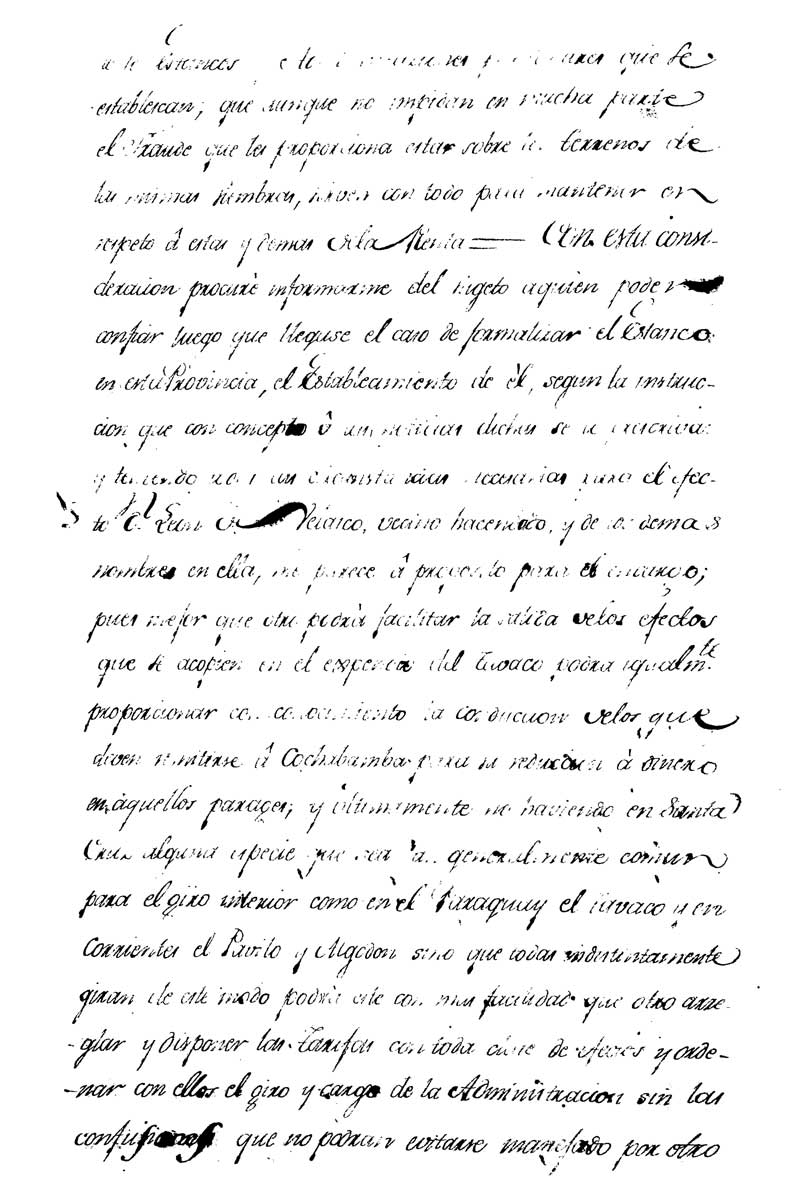 Estancos que se
establescan; que aunque no impidan en mucha parte
el fraude que les proporciona estar sobre los terrenos de
las mismas siembras, sirven con todo para mantener en
respeto â estas y demas dela Renta = Con esta consi-
deracion procurè informarme del sugeto aquien poder
confiar luego que llegase el caso de formalizar el Estanco
en està Provincia, el Establecamiento de èl, segun la instruc-
cion que con concepto â dichas se
y teniendo necesarias para el efec-
to Dn Leon de Velasco, vecino hacendado, y de los demas
nombres en ella, me parece â proposito para el encargo;
pues mejor que otro podrà facilitar la salida delos efectos
que se acopien en el expencio del Tavaco podra igualmte
proporcionar con conocimiento la conducion delos que
deven remitirse â Cochabamba para su reducion à dinero
en aquellos parages; y ùltimamente no haviendo en Santa
Cruz alguna especie que sea tan generalmente comun
para el giro interior como en el Paraguay el tavaco y en
Corrientes el Pavilo y Algodon sino que todas indistintamente
giran de este modo podrà este con mas facilidad que otro arre-
-glar y disponer las Tarifas con toda clase de efectos y orde-
-nar con ellos el giro y cargo de la Administracion sin las
confusiones que no podran evitarse manejado por otro